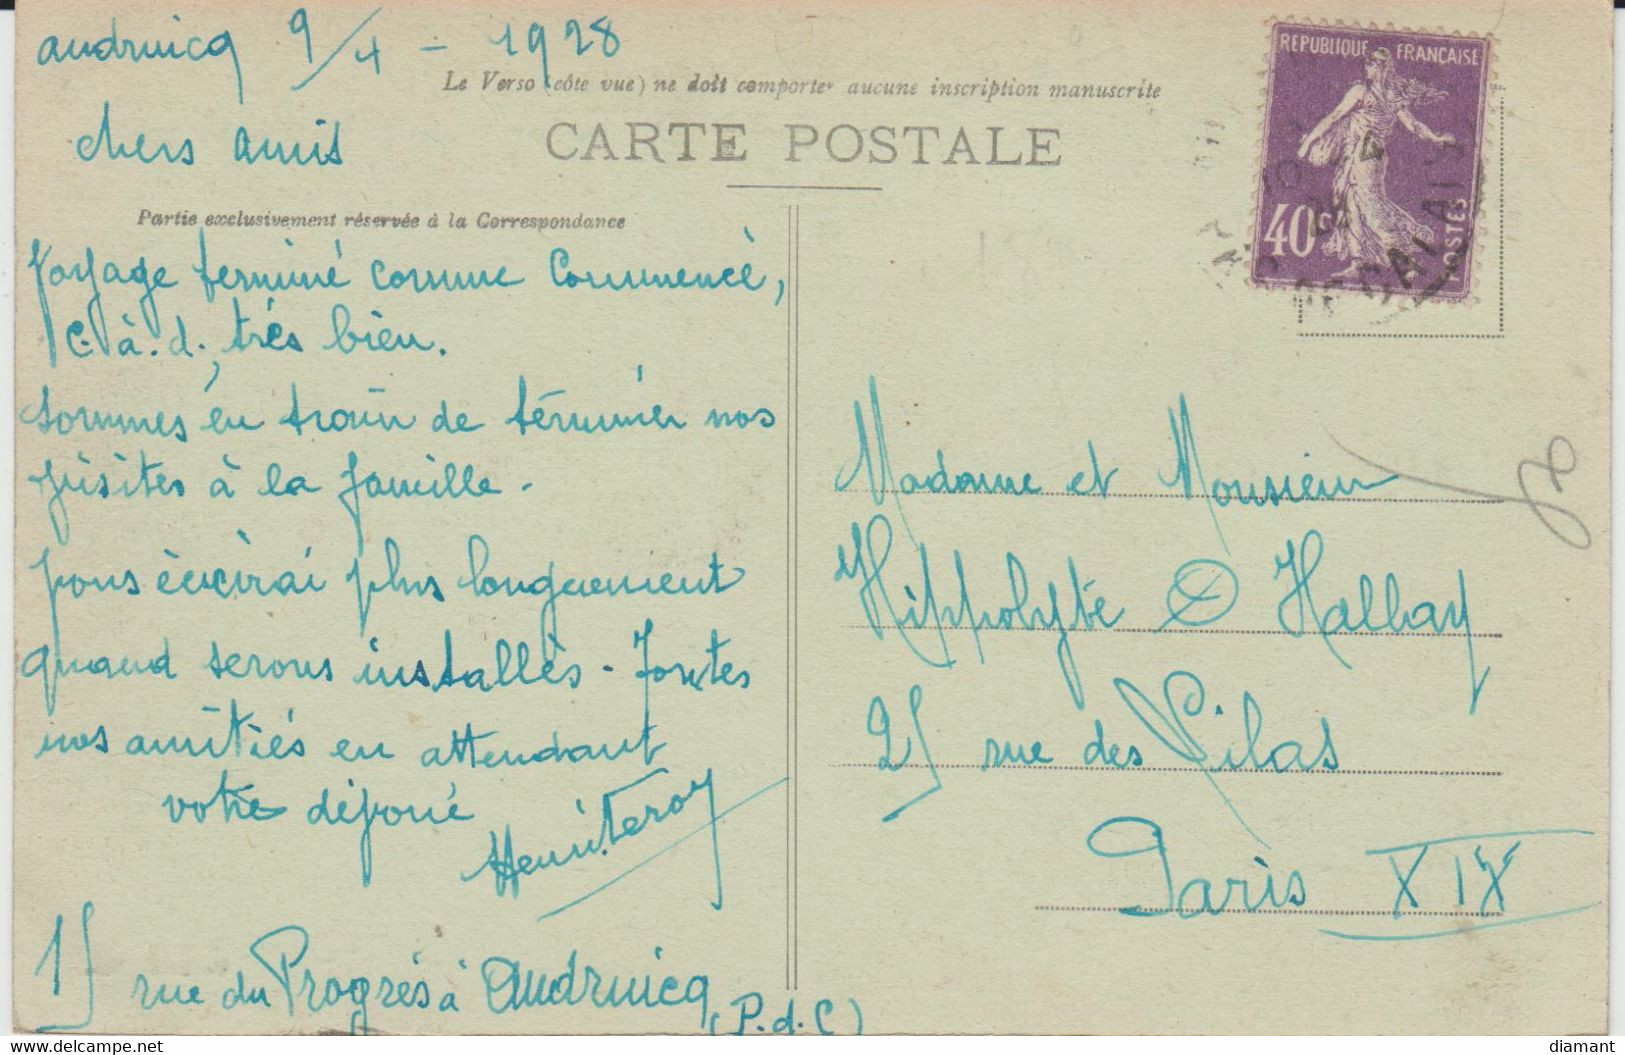 Audruicq 9/4 - 1928
Le Verso (côte vue) ne doit comporter aucune inscription manuscrite
chers amis
CARTE POSTALE
Partie exclusivement réservée à la Correspondance
Voyage terminé comme Commencé,
c. à. d., très bien.
Sommes en train de terminer nos
visites à la famille.
Vous écrirai plus longuement
quand serons installés - Toutes
nos amitiés en attendant
votre dévoué
Henri Teroy
15 rue du Progrès à Audruicq
(P.d.C)
REPUBLIQUE FRANÇAISE
40c
POSTES
CALAIS
Madame et Monsieur
Hippolyte Hallay
25 rue des Lilas
Paris XIX
diamant